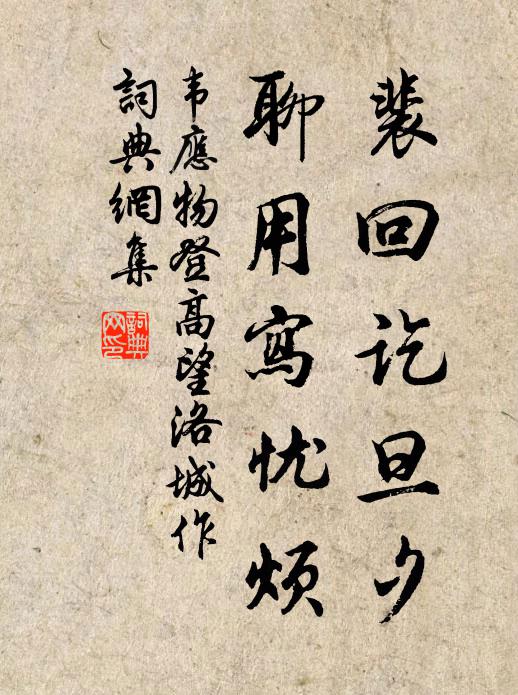 裴回讫旦夕
聊用寫忧烦
韦應物登高望洛城作
詞典網集
詞典网印